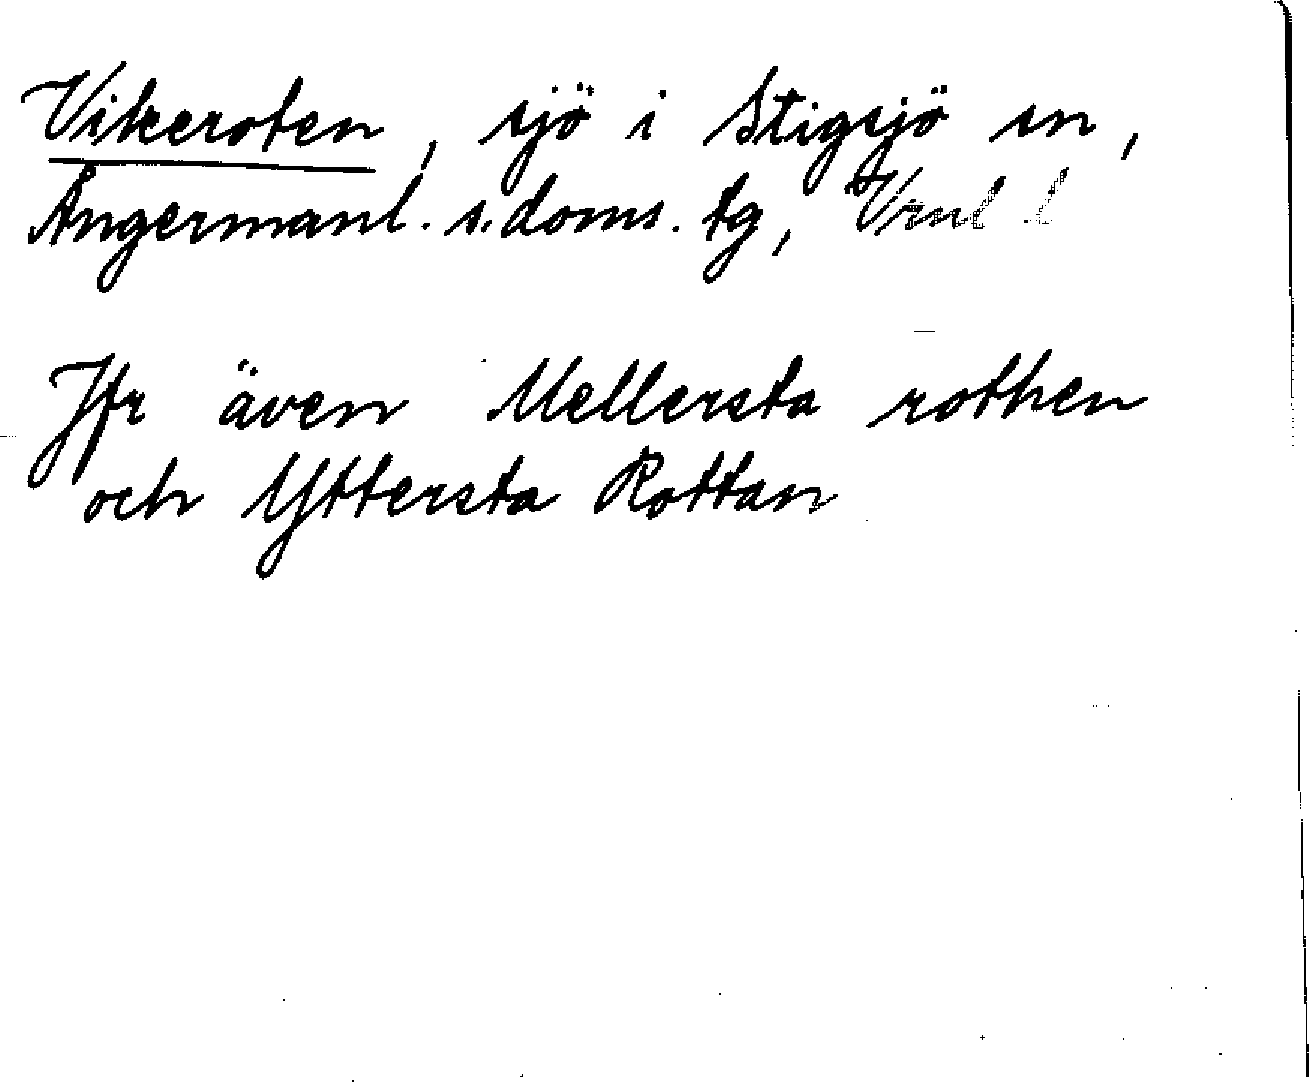 Vikeroten, sjö i Stigsjö sn,
Ångermanl. s. doms. tg, Vrnl. l
Jfr även Mellersta rothen
och Yttersta Rottan